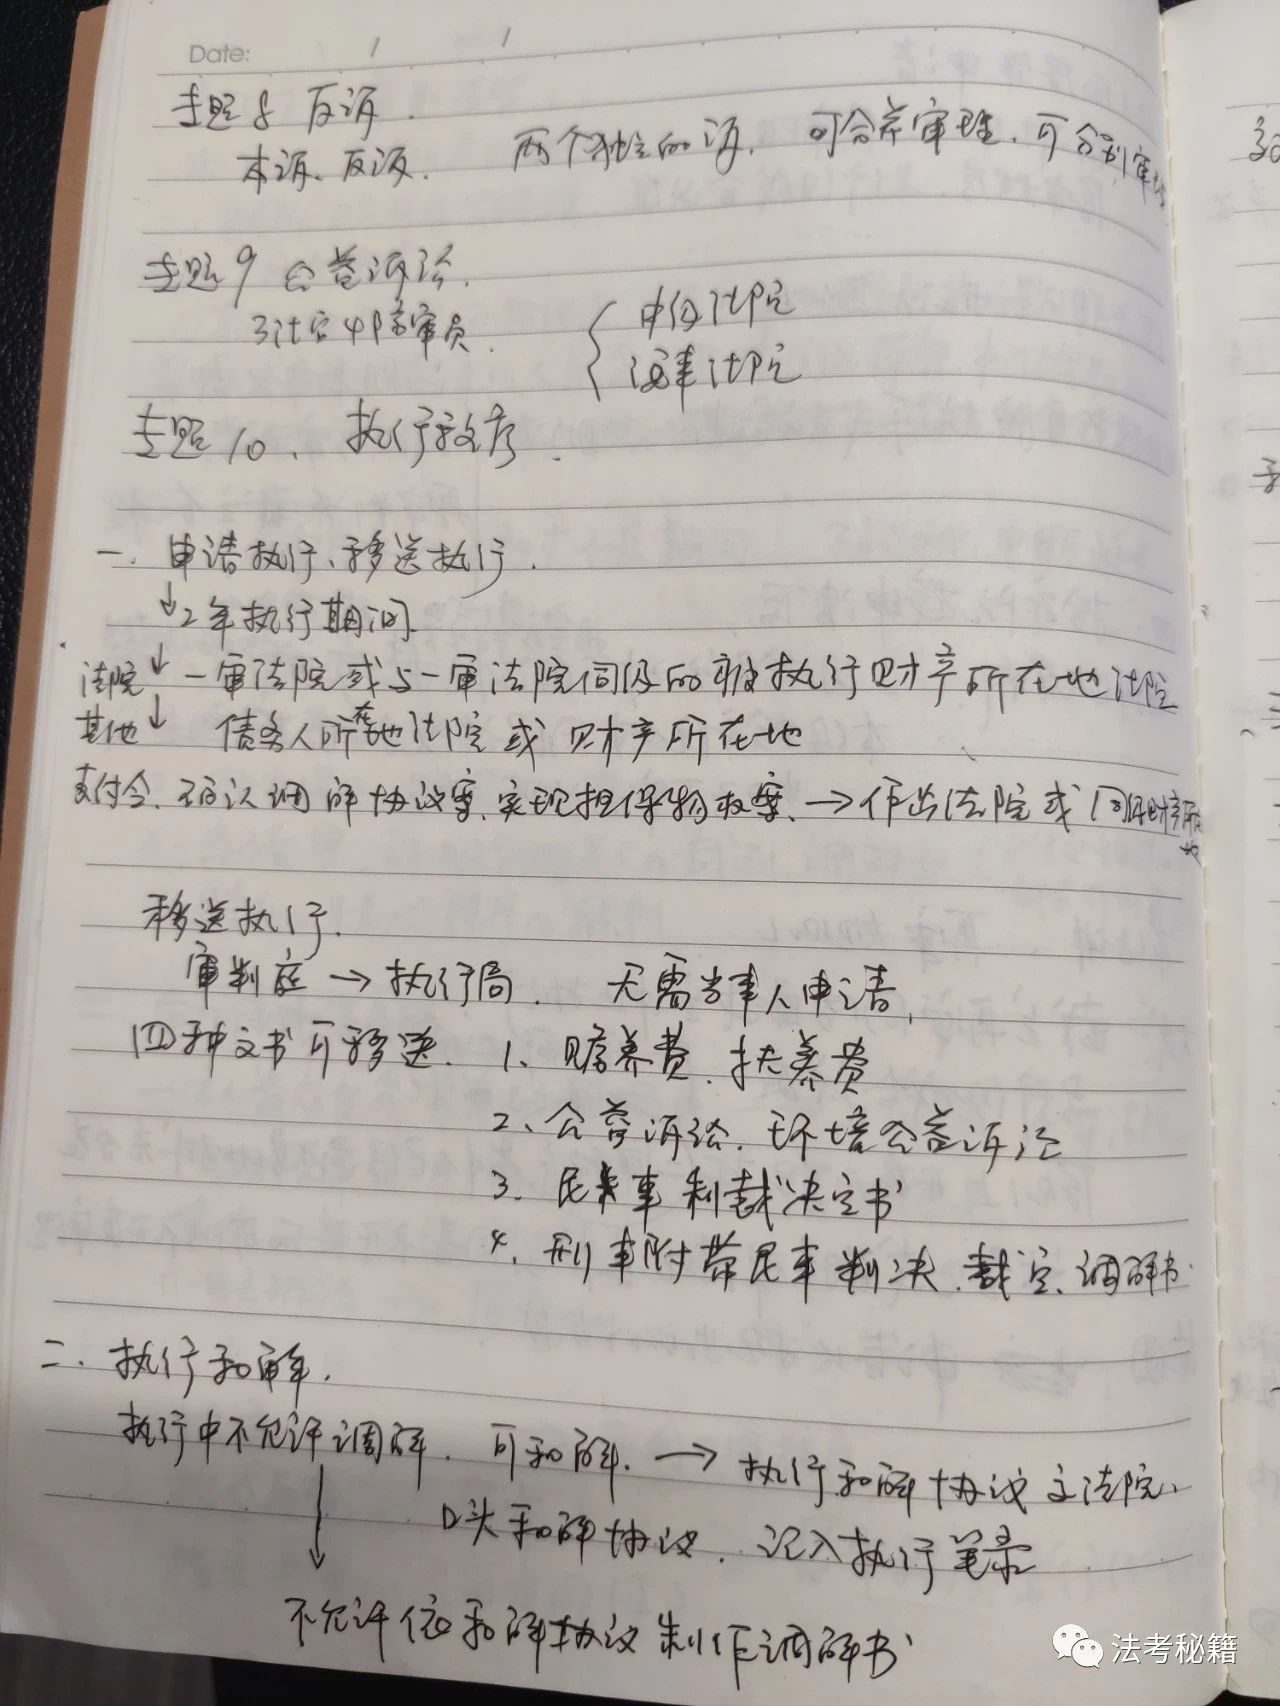 Date: / /
专题8 反诉.
本诉、反诉. 两个独立的诉, 可合并审理, 可分别审理
专题9 公益诉讼.
3法官4陪审员. { 中级法院
海事法院
专题10、执行程序.
一. 申请执行、移送执行.
↓2年执行期间
法院↓ 一审法院或与一审法院同级的被执行财产所在地法院
其他↓ 债务人所在地法院或财产所在地
支付令、确认调解协议案、实现担保物权案、→作出法院或同级财产所在地
移送执行.
审判庭→执行局. 无需当事人申请,
四种文书可移送. 1、赡养费、扶养费
2、公益诉讼、环境公益诉讼
3. 民事制裁决定书
4. 刑事附带民事判决、裁定、调解书
二. 执行和解.
执行中不允许调解. 可和解. → 执行和解协议交法院、
↓ 口头和解协议, 记入执行笔录
不允许依和解协议制作调解书
法考秘籍